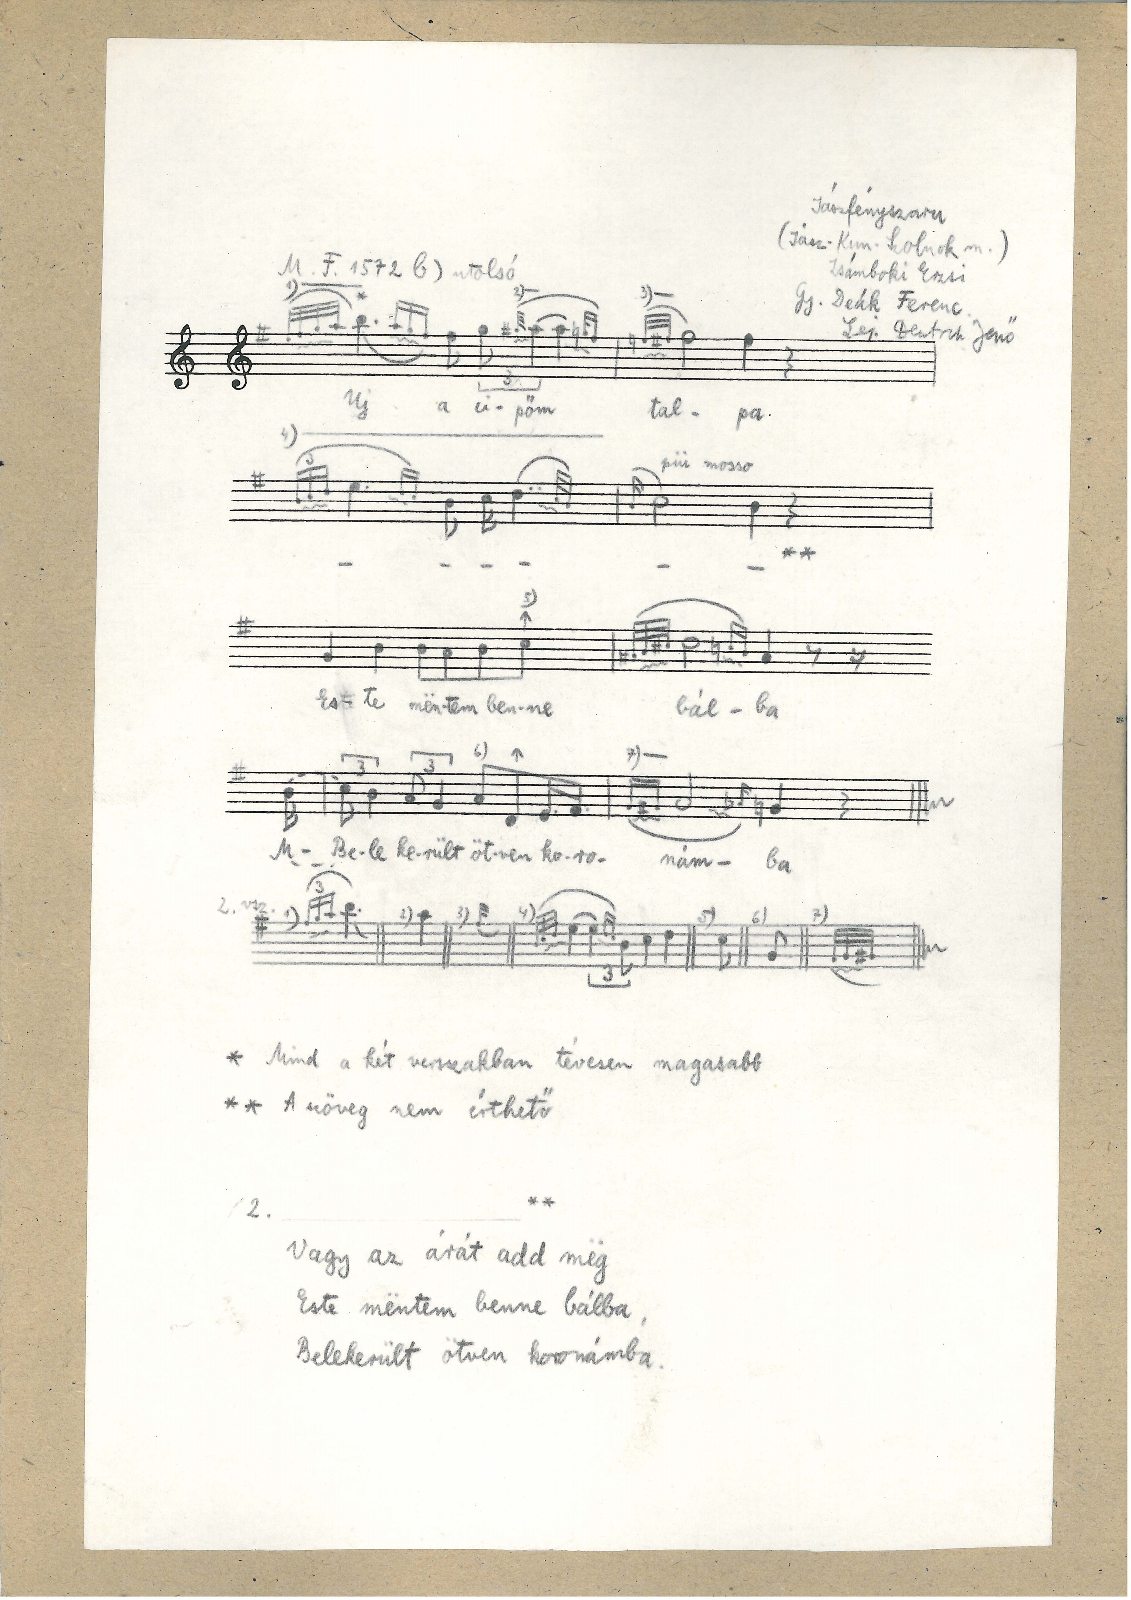 Jászfényszaru
(Jász-Kun-Szolnok m.)
Zsámboki Erzsi
Gy. Deák Ferenc.
Lej. Deutsch Jenő
M. F. 1572 b) utolsó
1) * 2) 3)
3
Uj a ci-pőm tal- pa.
4)
3 più mosso
**
- - - - - -
5)
Es-te mëntem ben-ne bál-ba
3 3 6) 7)
M- Be-le ke-rült öt-ven ko-ro- nám- ba
2. vsz. 1) 3 2) 3) 4) 5) 6) 7)
3
* Mind a két versszakban tévesen magasabb
** A szöveg nem érthető
2. **
Vagy az árát add még
Este mëntem benne bálba,
Belekerült ötven koronámba.